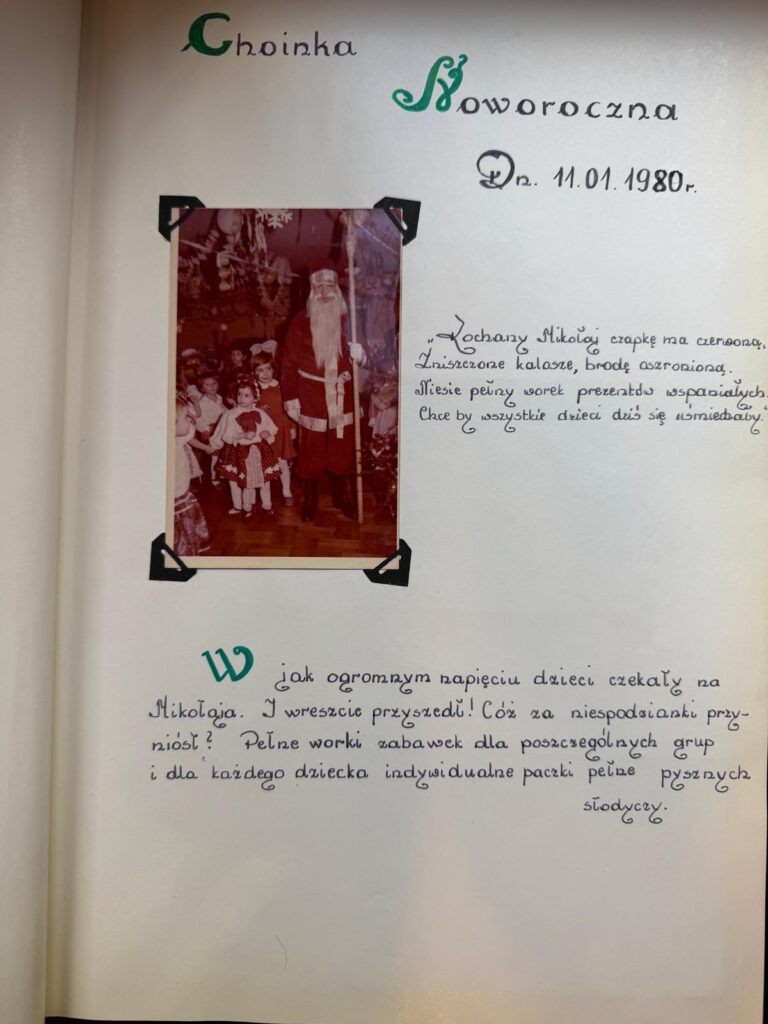 Choinka
Noworoczna
Dn. 11.01.1980r.
„Kochany Mikołaj czapkę ma czerwoną,
Zniszczone kalosze, brodę oszronioną.
Niesie pełny worek prezentów wspaniałych.
Chce by wszystkie dzieci dziś się uśmiechały."
W jak ogromnym napięciu dzieci czekały na
Mikołaja. I wreszcie przyszedł! Cóż za niespodzianki przy-
niósł? Pełne worki zabawek dla poszczególnych grup
i dla każdego dziecka indywidualne paczki pełne pysznych
słodyczy.